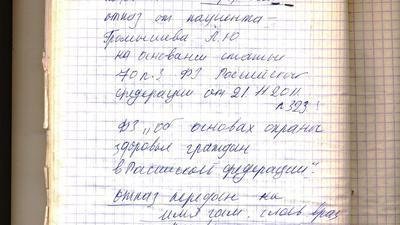 отказ от пациента –
Громышева А.Ю
на основании статьи
70 п.3 ФЗ Российской
федерации от 21.11.2011
n 323
ФЗ „об основах охраны
здоровья граждан
в Российской федерации".
отказ передан на
имя глав. врач